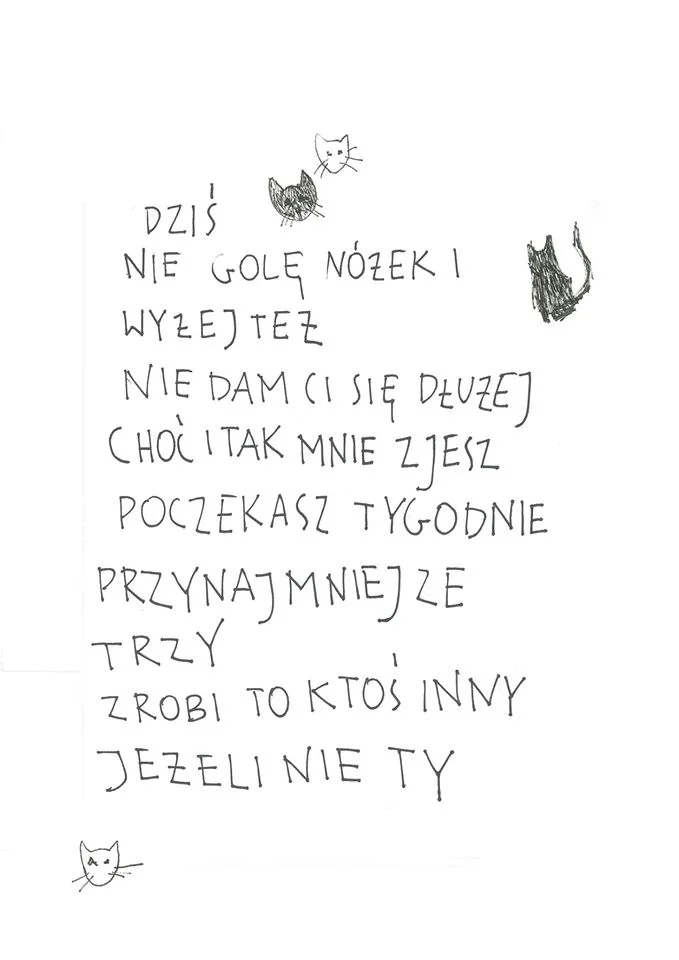 DZIŚ
NIE GOLĘ NÓŻEK I
WYŻEJ TEŻ
NIE DAM CI SIĘ DŁUŻEJ
CHOĆ I TAK MNIE ZJESZ
POCZEKASZ TYGODNIE
PRZYNAJMNIEJ ZE
TRZY
ZROBI TO KTOŚ INNY
JEŻELI NIE TY